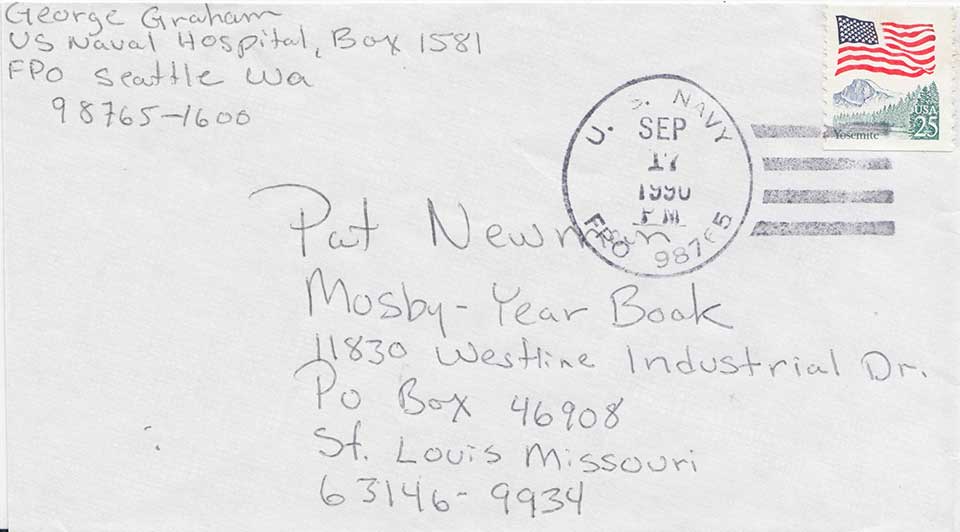 George Graham
US Naval Hospital, Box 1581
FPO Seattle Wa
98765-1600
U. S. NAVY
SEP
17
1990
PM
FPO 98765
USA
25
Yosemite
Pat Newman
Mosby-Year Book
11830 Westline Industrial Dr.
Po Box 46908
St. Louis Missouri
63146-9934